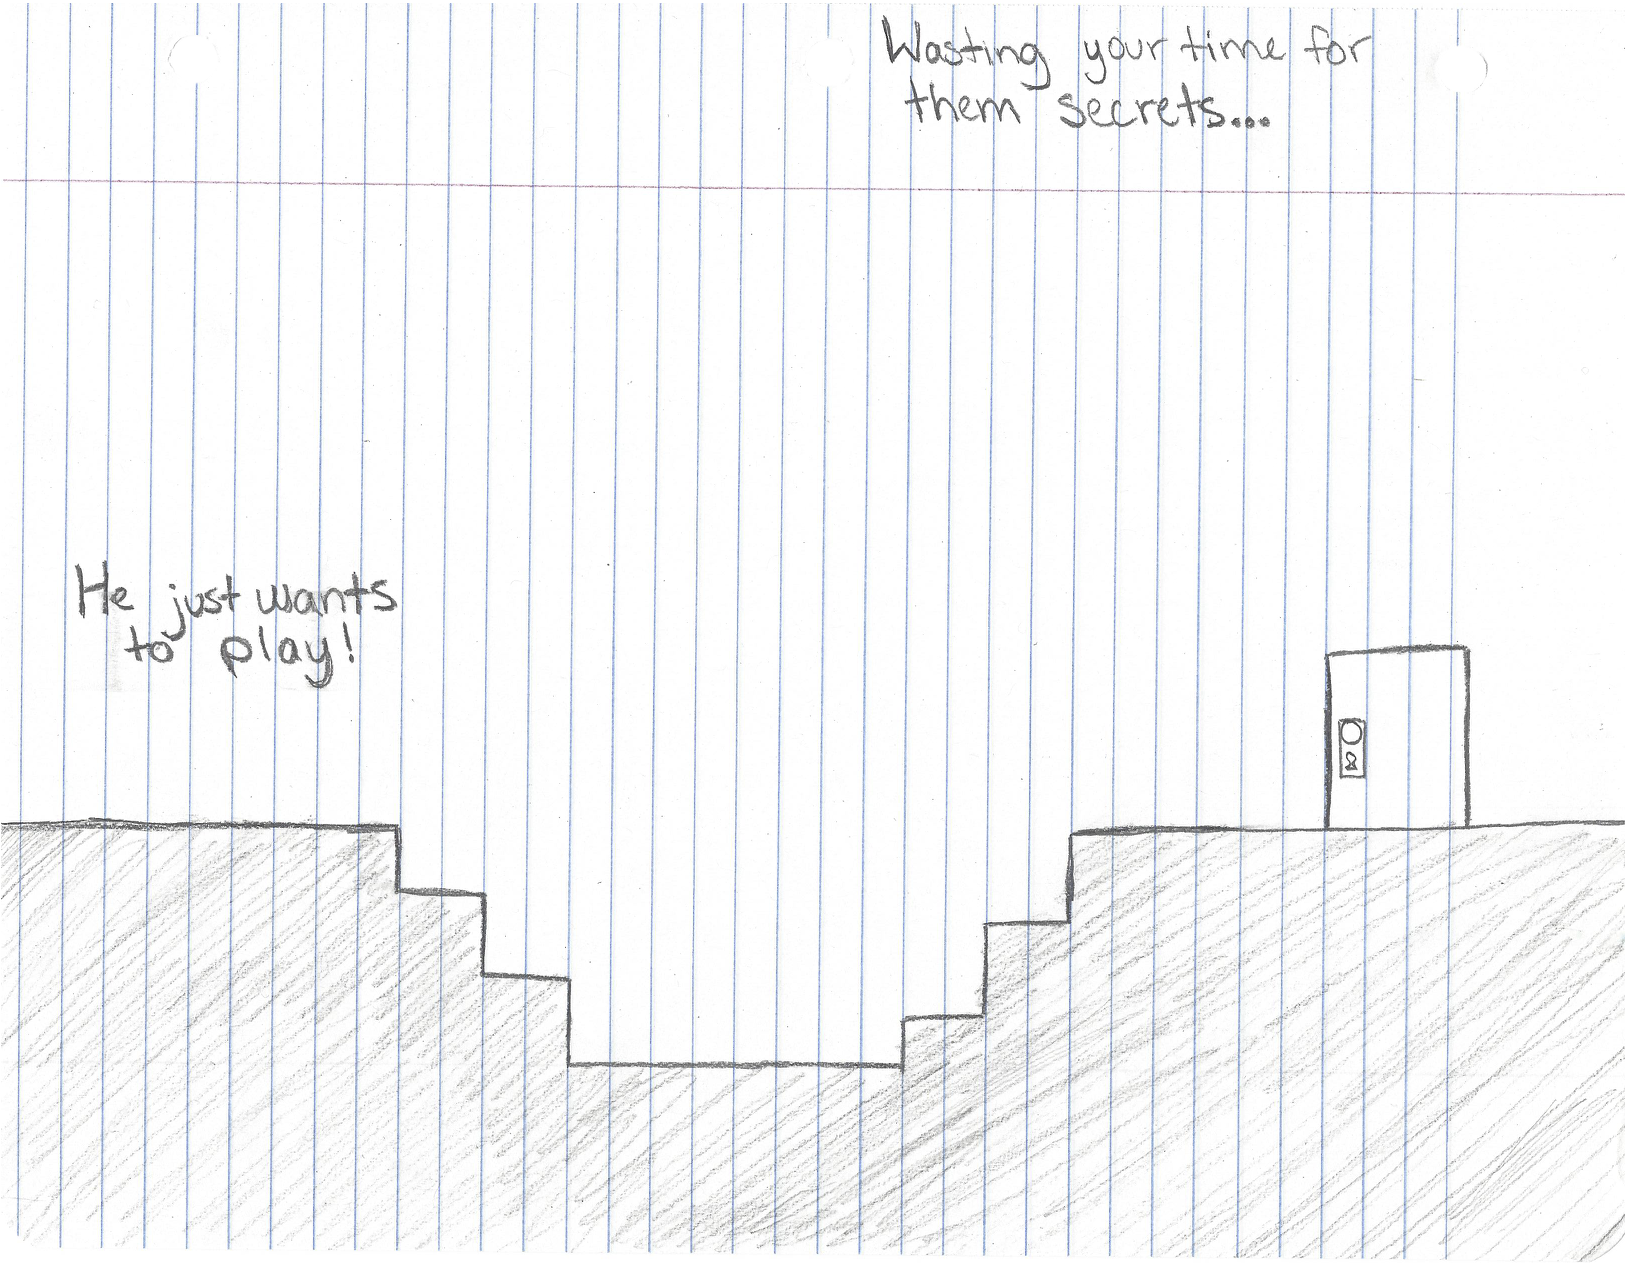 Wasting your time for
them secrets...
He just wants
to play!